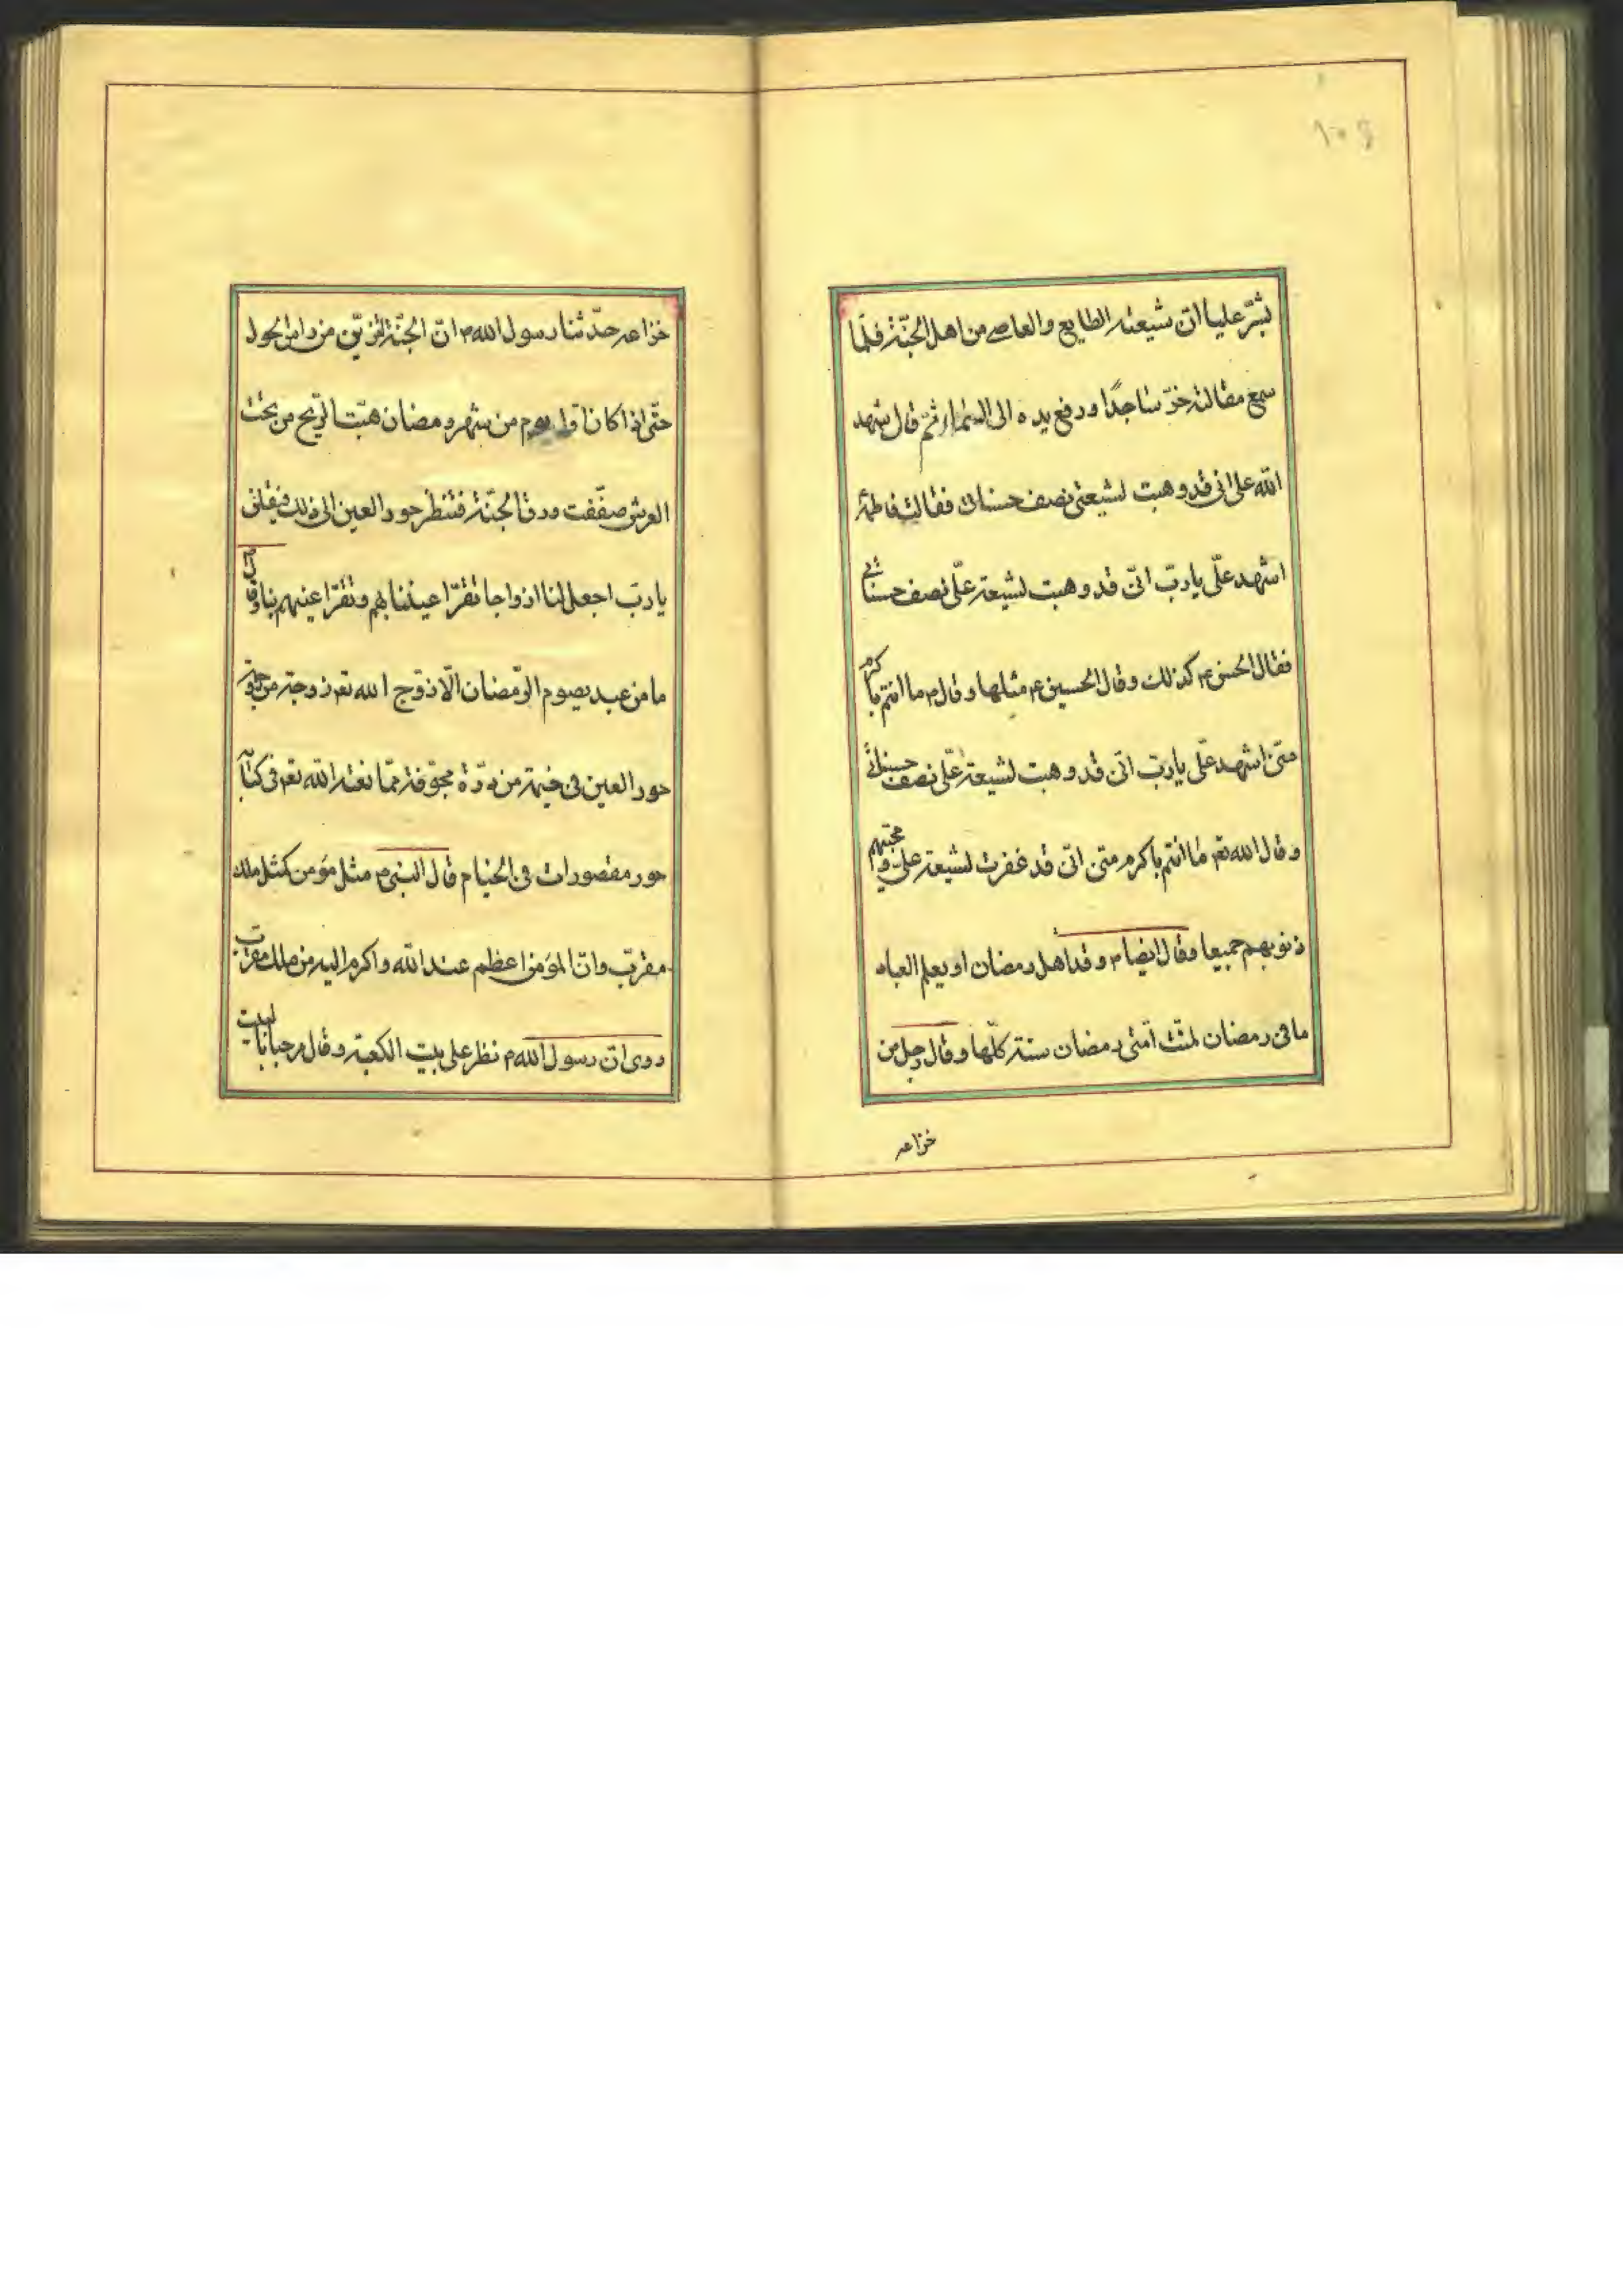 ١٠٤
بشّر عليا انّ شيعته الطايع والعاصى من اهل الجنّة فلمّا
سمع مقالته خرّ ساجدًا ورفع يده الى السّماء ثمّ قال اشهد
الله على انى قد وهبت لشيعتى نصف حسناتى فقالت فاطمة
اشهد علّى يا ربّ انّى قد وهبت لشيعة علّى نصف حسناتى
فقال الحسن ع كذلك وقال الحسين ع مثلها وقال م ما انتم باكرم
منّى اشهد علّى يا ربّ انّى قد وهبت لشيعة علّى نصف حسناتى
و قال الله تع ما انتم باكرم منّى انّى قد غفرت لشيعة على و محبّيهم
ذنوبهم جميعا وقال ايضا م وقد اهل رمضان لو يعلم العباد
ما فى رمضان لمنّت امّتى رمضان سنة كلّها وقال رجل من
خزاعه
خزاعه حدّثنا رسول الله م انّ الجنّة لتزيّن من راس الحول
حتّى اذا كان اوّل يوم من شهر رمضان هبّت الرّيح من تحت
العرش صفّقت ورق الجنّة فتنظر حور العين الى ذلك فيقلن
يا ربّ اجعل لنا ازواجا تقرّ اعيننا بهم وتقرّ اعينهم بنا وقال
ما من عبد يصوم الرّمضان الّا زوّج الله تع زوجة من
حور العين فى خيمة من درّة مجوّفة ممّا نعته الله تع فى كتابه
حور مقصورات فى الخيام قال النبى م مثل مؤمن كمثل ملك
مقرّب وانّ المؤمن اعظم عند الله واكرم اليه من ملك مقرّب
روى انّ رسول الله م نظر على بيت الكعبة وقال مرحبا بالبيت